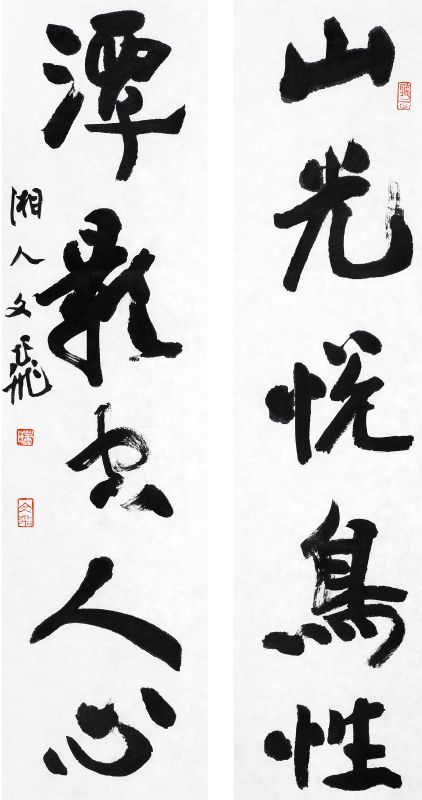 山光悦鳥性
潭影空人心
湘人文飛